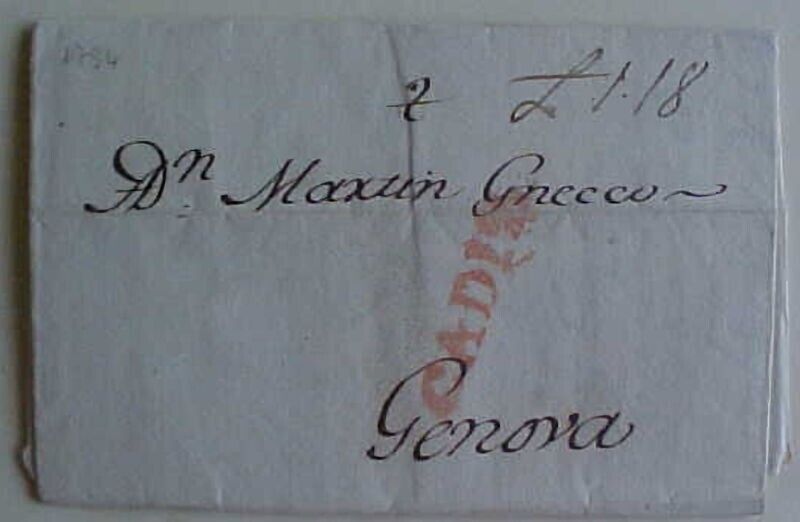 1794
£ 1.18
A Dn. Martin Gnecco
CADIZ
Genova